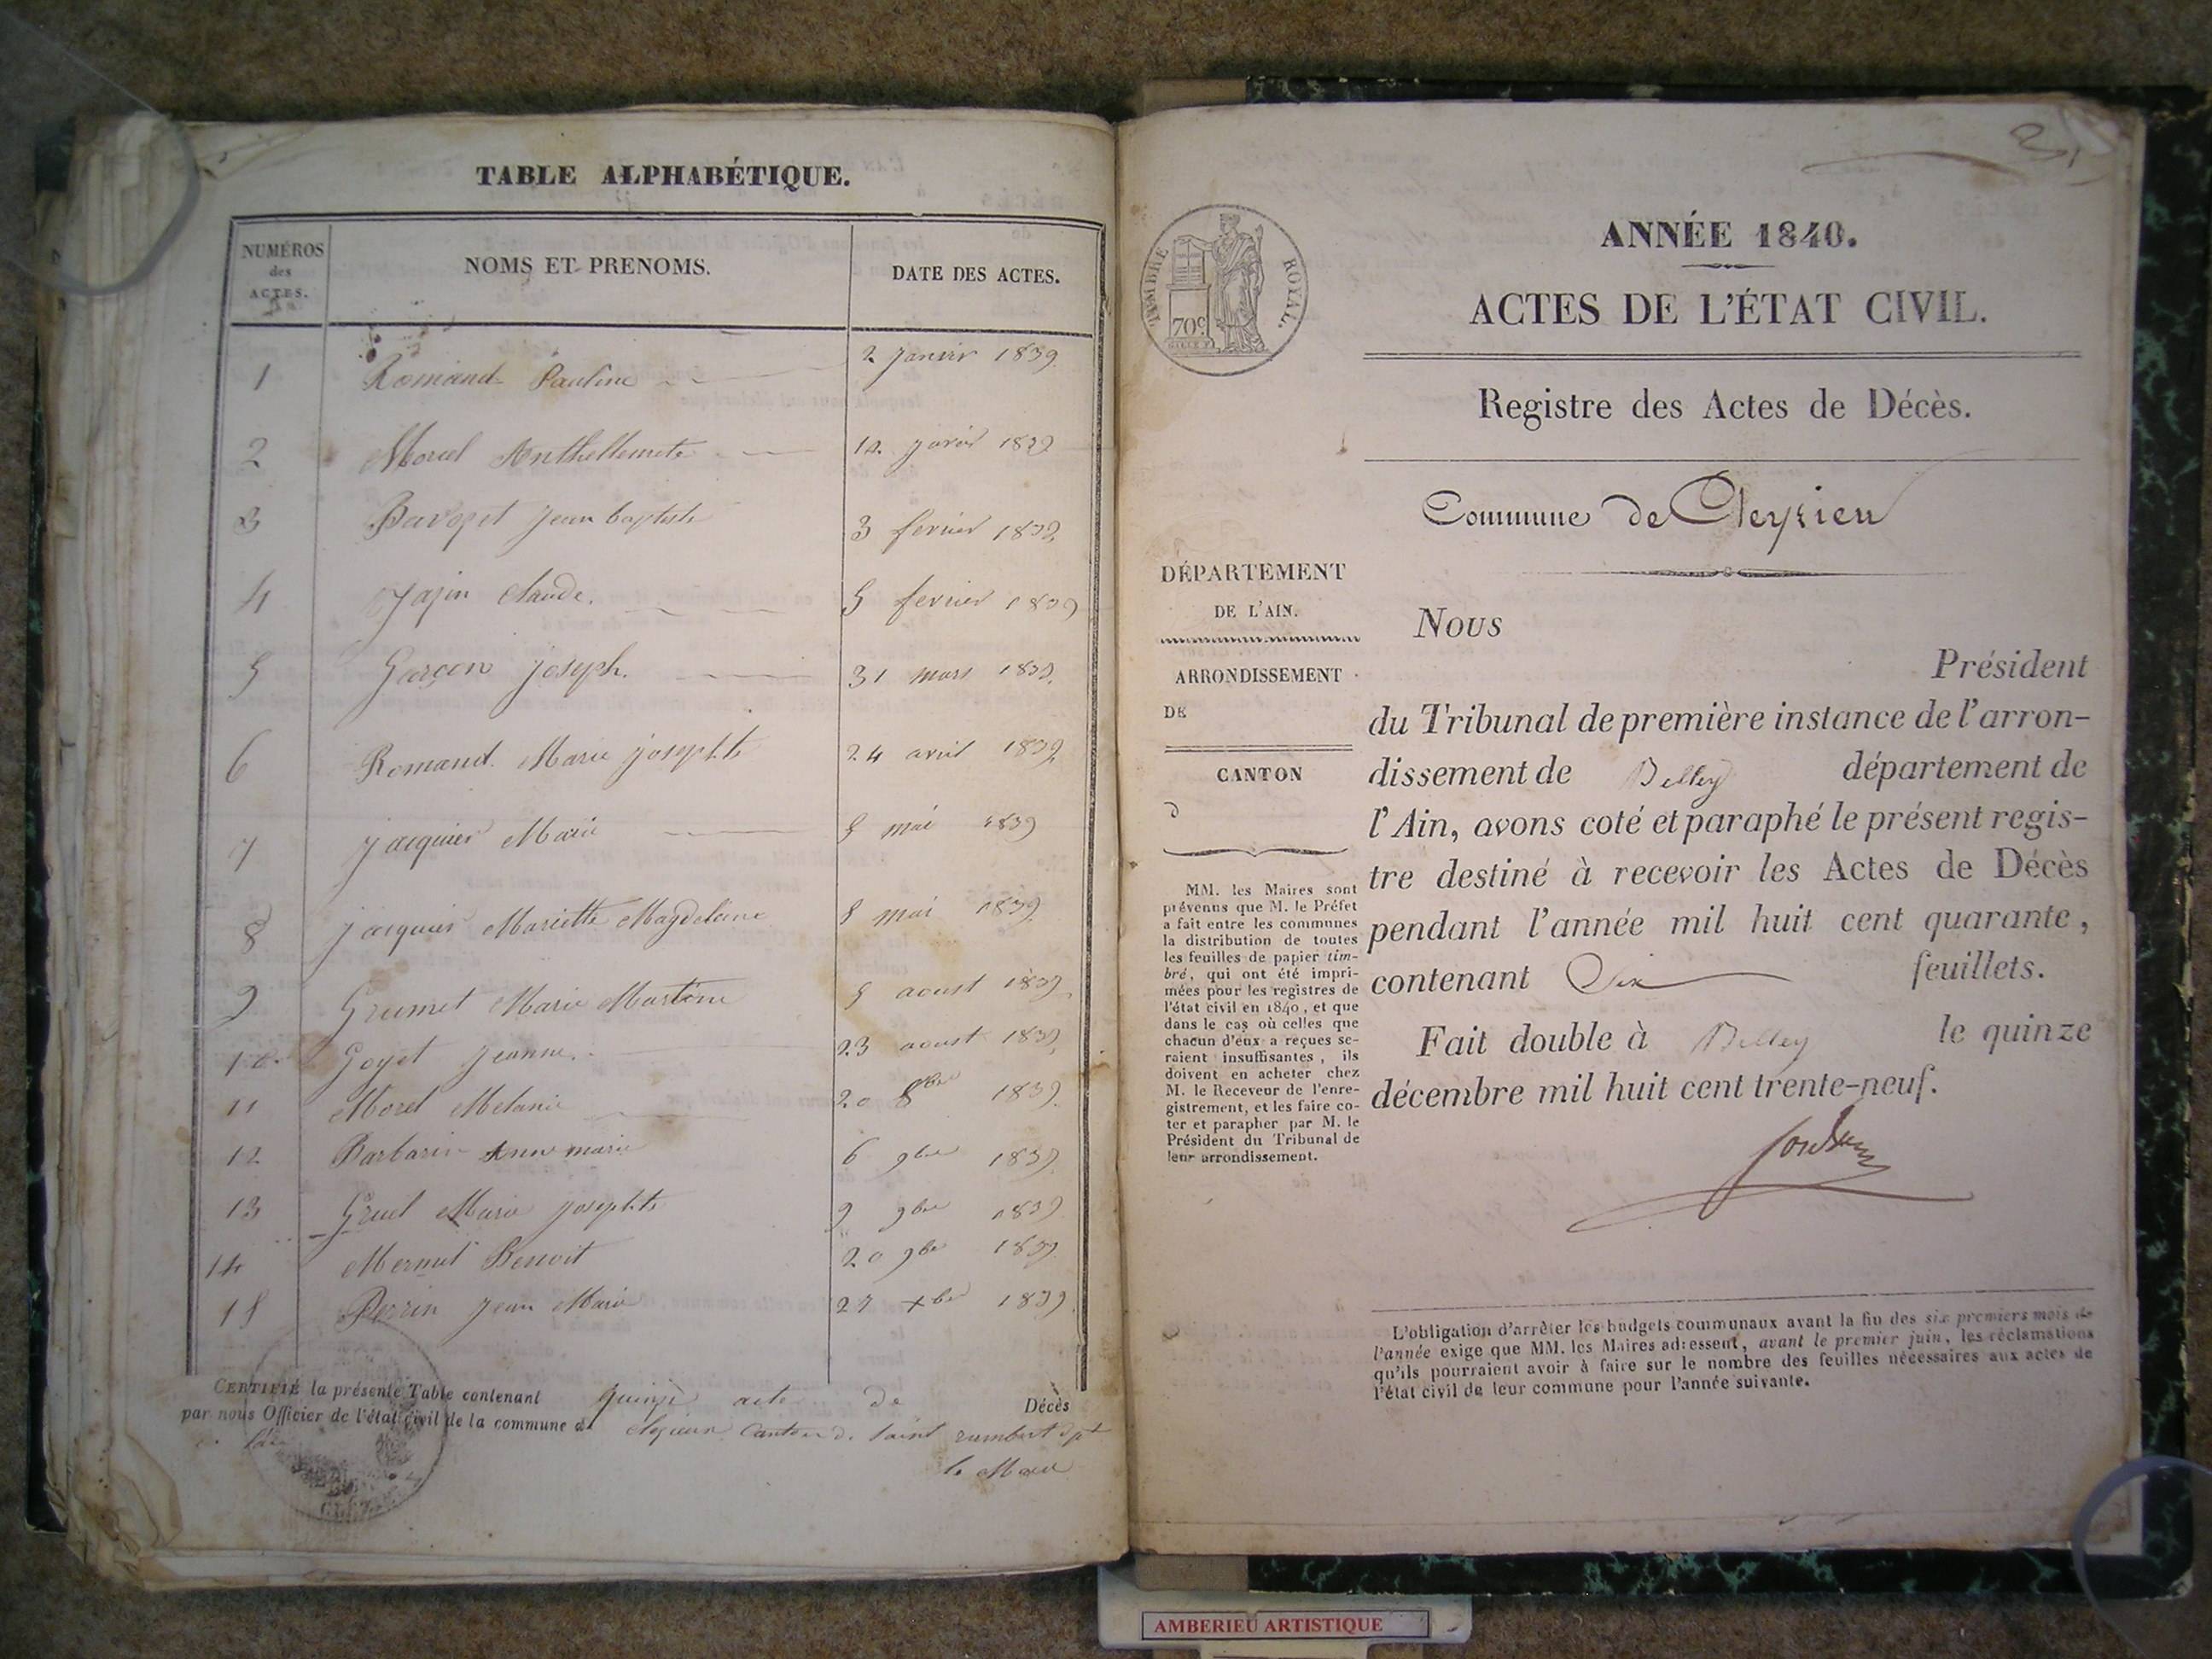 TABLE ALPHABÉTIQUE.
NUMÉROS
des
ACTES.
NOMS ET PRENOMS.
DATE DES ACTES.
1 Romand Pauline 2 janvir 1839
2 Morel Anthellemete 12. janvir 1839
3 Bavozet jean baptiste 3 fevrier 1839
4 jazin Claude. 5 fevrier 1839
5 Garçon joseph. 31 mars 1839.
6 Romand. Marie josephte 24 avril 1839
7 jacquier Marie 5 mai 1839
8 jacquier Mariette Magdelaine 8 mai 1839
9 Grumet Marie Martine 5 aoust 1839
10 Goyet jeanne. 23 aoust 1839
11 Morel Melanie 20 8bre 1839
12 Barbarin Anne marie 6 9bre 1839
13 Gruel Marie josephte 9 9bre 1839
14 Mermet Benoit 20 9bre 1839
15 Perrin jean Marie 27 xbre 1839
CERTIFIÉ la présente Table contenant quinze acte de Décès
par nous Officier de l'état civil de la commune de Cleyzieu Canton de saint rambert dpt
le Maire
2
TIMBRE ROYAL.
70c
ANNÉE 1840.
ACTES DE L'ÉTAT CIVIL.
Registre des Actes de Décès.
Commune de Cleyzieu
DÉPARTEMENT
DE L'AIN.
ARRONDISSEMENT
DE
CANTON
d
MM. les Maires sont
prévenus que M. le Préfet
a fait entre les communes
la distribution de toutes
les feuilles de papier tim-
bré, qui ont été impri-
mées pour les registres de
l'état civil en 1840, et que
dans le cas où celles que
chacun d'eux a reçues se-
raient insuffisantes, ils
doivent en acheter chez
M. le Receveur de l'enre-
gistrement, et les faire co-
ter et parapher par M. le
Président du Tribunal de
leur arrondissement.
Nous
Président
du Tribunal de première instance de l'arron-
dissement de Belley département de
l'Ain, avons coté et paraphé le présent regis-
tre destiné à recevoir les Actes de Décès
pendant l'année mil huit cent quarante,
contenant Six feuillets.
Fait double à Belley le quinze
décembre mil huit cent trente-neuf.
L'obligation d'arrêter les budgets communaux avant la fin des six premiers mois de
l'année exige que MM. les Maires adressent, avant le premier juin, les réclamations
qu'ils pourraient avoir à faire sur le nombre des feuilles nécessaires aux actes de
l'état civil de leur commune pour l'année suivante.
AMBERIEU ARTISTIQUE